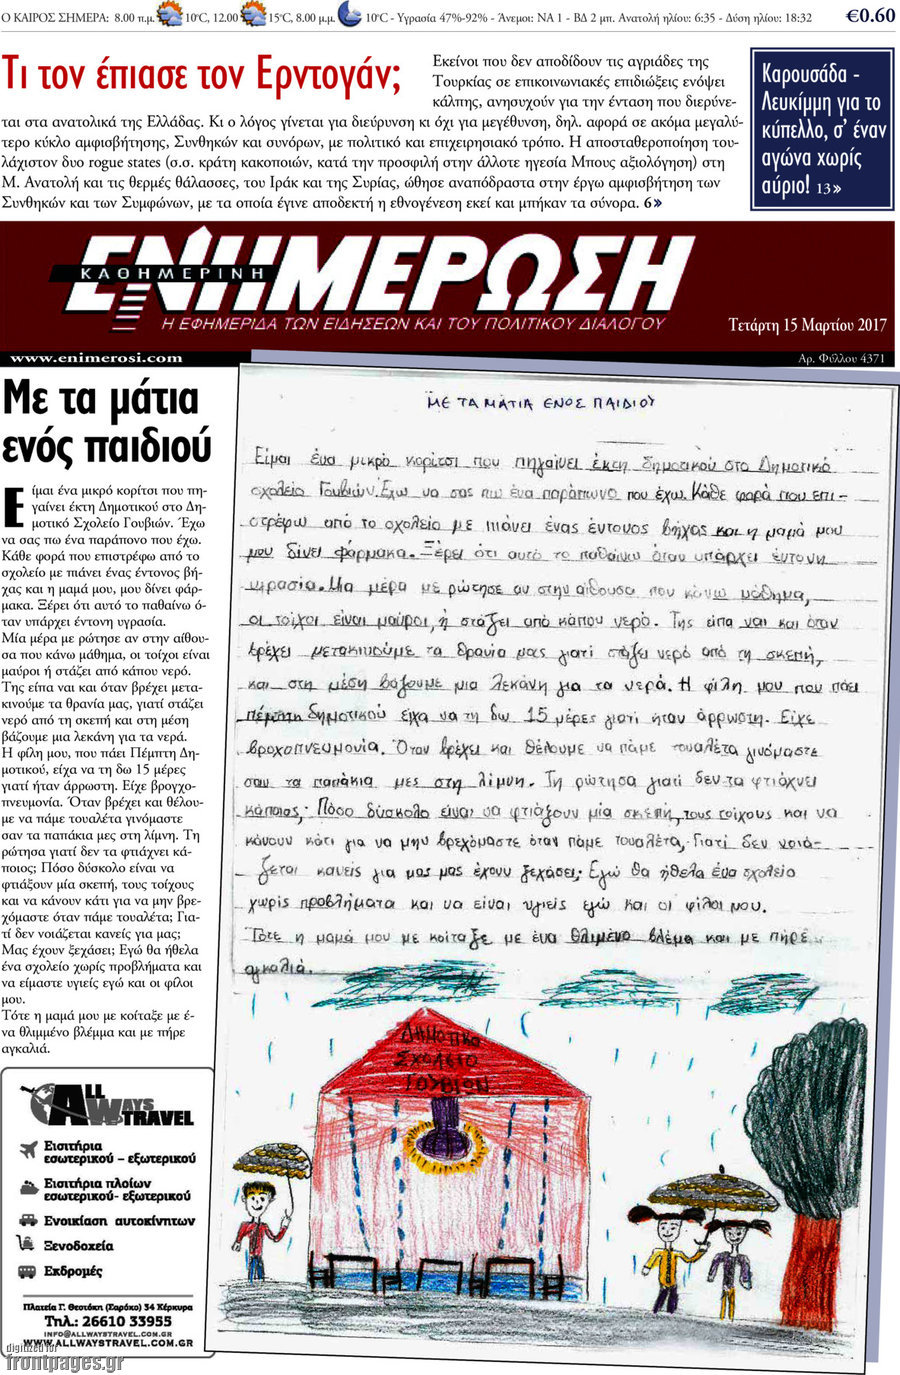 Ο ΚΑΙΡΟΣ ΣΗΜΕΡΑ: 8.00 π.μ. 10°C, 12.00 15°C, 8.00 μ.μ. 10°C - Υγρασία 47%-92% - Άνεμοι: ΝΑ 1 - ΒΔ 2 μπ. Ανατολή ηλίου: 6:35 - Δύση ηλίου: 18:32
€0.60
Τι τον έπιασε τον Ερντογάν;
Εκείνοι που δεν αποδίδουν τις αγριάδες της
Τουρκίας σε επικοινωνιακές επιδιώξεις ενόψει
κάλπης, ανησυχούν για την ένταση που διερύνε-
ται στα ανατολικά της Ελλάδας. Κι ο λόγος γίνεται για διεύρυνση κι όχι για μεγέθυνση, δηλ. αφορά σε ακόμα μεγαλύ-
τερο κύκλο αμφισβήτησης, Συνθηκών και συνόρων, με πολιτικό και επιχειρησιακό τρόπο. Η αποσταθεροποίηση του-
λάχιστον δυο rogue states (σ.σ. κράτη κακοποιών, κατά την προσφιλή στην άλλοτε ηγεσία Μπους αξιολόγηση) στη
Μ. Ανατολή και τις θερμές θάλασσες, του Ιράκ και της Συρίας, ώθησε αναπόδραστα στην έργω αμφισβήτηση των
Συνθηκών και των Συμφώνων, με τα οποία έγινε αποδεκτή η εθνογένεση εκεί και μπήκαν τα σύνορα. 6»
Καρουσάδα -
Λευκίμμη για το
κύπελλο, σ' έναν
αγώνα χωρίς
αύριο! 13»
ΚΑΘΗΜΕΡΙΝΗ
ΕΝΗΜΕΡΩΣΗ
Η ΕΦΗΜΕΡΙΔΑ ΤΩΝ ΕΙΔΗΣΕΩΝ ΚΑΙ ΤΟΥ ΠΟΛΙΤΙΚΟΥ ΔΙΑΛΟΓΟΥ
Τετάρτη 15 Μαρτίου 2017
www.enimerosi.com
Αρ. Φύλλου 4371
Με τα μάτια
ενός παιδιού
Είμαι ένα μικρό κορίτσι που πη-
γαίνει έκτη Δημοτικού στο Δη-
μοτικό Σχολείο Γουβιών. Έχω
να σας πω ένα παράπονο που έχω.
Κάθε φορά που επιστρέφω από το
σχολείο με πιάνει ένας έντονος βή-
χας και η μαμά μου, μου δίνει φάρ-
μακα. Ξέρει ότι αυτό το παθαίνω ό-
ταν υπάρχει έντονη υγρασία.
Μία μέρα με ρώτησε αν στην αίθου-
σα που κάνω μάθημα, οι τοίχοι είναι
μαύροι ή στάζει από κάπου νερό.
Της είπα ναι και όταν βρέχει μετα-
κινούμε τα θρανία μας, γιατί στάζει
νερό από τη σκεπή και στη μέση
βάζουμε μια λεκάνη για τα νερά.
Η φίλη μου, που πάει Πέμπτη Δη-
μοτικού, είχα να τη δω 15 μέρες
γιατί ήταν άρρωστη. Είχε βρογχο-
πνευμονία. Όταν βρέχει και θέλου-
με να πάμε τουαλέτα γινόμαστε
σαν τα παπάκια μες στη λίμνη. Τη
ρώτησα γιατί δεν τα φτιάχνει κά-
ποιος; Πόσο δύσκολο είναι να
φτιάξουν μία σκεπή, τους τοίχους
και να κάνουν κάτι για να μην βρε-
χόμαστε όταν πάμε τουαλέτα; Για-
τί δεν νοιάζεται κανείς για μας;
Μας έχουν ξεχάσει; Εγώ θα ήθελα
ένα σχολείο χωρίς προβλήματα και
να είμαστε υγιείς εγώ και οι φίλοι
μου.
Τότε η μαμά μου με κοίταξε με έ-
να θλιμμένο βλέμμα και με πήρε
αγκαλιά.
ΜΕ ΤΑ ΜΑΤΙΑ ΕΝΟΣ ΠΑΙΔΙΟΥ
Είμαι ένα μικρό κορίτσι που πηγαίνει έκτη δημοτικού στο Δημοτικό
σχολείο Γουβιών. Εχω να σας πω ένα παράπονο που έχω. Κάθε φορά που επι-
στρέφω από το σχολείο με πιάνει ένας έντονος βήχας και η μαμά μου
μου δίνει φάρμακα. Ξέρει ότι αυτό το παθαίνω όταν υπάρχει έντονη
υγρασία. Μια μέρα με ρώτησε αν στην αίθουσα που κάνω μάθημα,
οι τοίχοι είναι μαύροι, ή στάζει από κάπου νερό. Της είπα ναι και όταν
βρέχει μετακινούμε τα θρανία μας γιατί στάζει νερό από τη σκεπή,
και στη μέση βάζουμε μια λεκάνη για τα νερά. Η φίλη μου που πάει
πέμπτη δημοτικού είχα να τη δω 15 μέρες γιατί ήταν άρρωστη. Είχε
βροχοπνευμονία. Όταν βρέχει και θέλουμε να πάμε τουαλέτα γινόμαστε
σαν τα παπάκια μες στη λίμνη. Τη ρώτησα γιατί δεν τα φτιάχνει
κάποιος; Πόσο δύσκολο είναι να φτιάξουν μία σκεπή, τους τοίχους και να
κάνουν κάτι για να μην βρεχόμαστε όταν πάμε τουαλέτα; Γιατί δεν νοιά-
ζεται κανείς για μας μας έχουν ξεχάσει; Εγώ θα ήθελα ένα σχολείο
χωρίς προβλήματα και να είναι υγιείς εγώ και οι φίλοι μου.
Τότε η μαμά μου με κοίταξε με ένα θλιμένο βλέμα και με πήρε
αγκαλιά.
ΔΗΜΟΤΙΚΟ
ΣΧΟΛΕΙΟ
ΓΟΥΒΙΩΝ
ALL
WAYS
TRAVEL
Εισιτήρια
εσωτερικού – εξωτερικού
Εισιτήρια πλοίων
εσωτερικού- εξωτερικού
Ενοικίαση αυτοκίνητων
Ξενοδοχεία
Εκδρομές
Πλατεία Γ. Θεοτόκη (Σαρόκο) 34 Κέρκυρα
Τηλ.: 26610 33955
INFO@ALLWAYSTRAVEL.COM.GR
WWW.ALLWAYSTRAVEL.COM.GR
digitized for
frontpages.gr